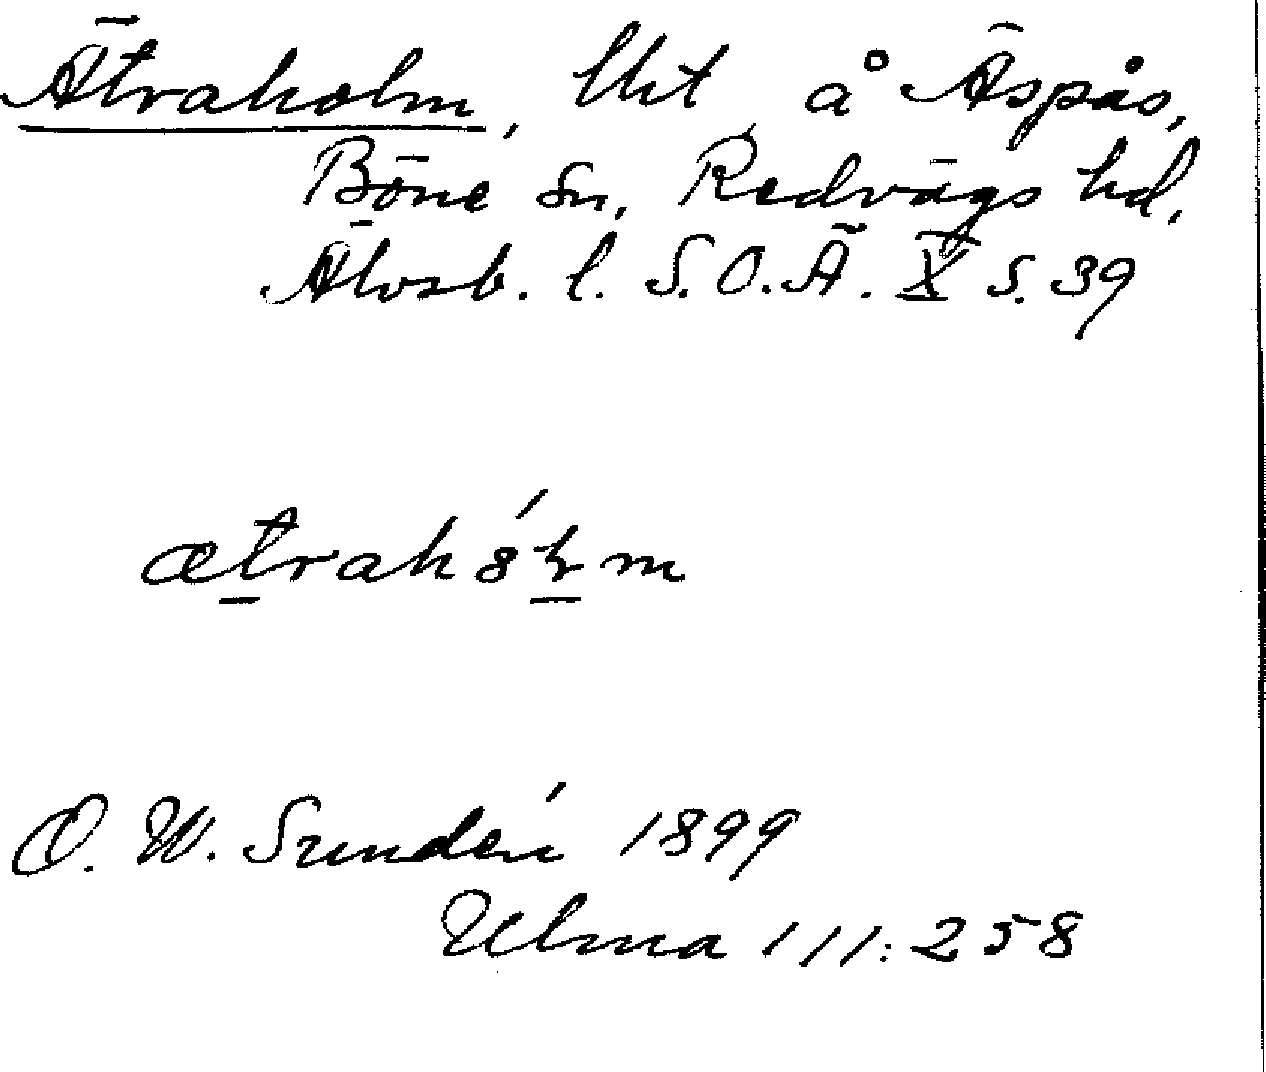 Ätraholm, lht å Äspås,
Böne sn, Redvägs hd,
Älvsb. l. S.O.Ä. X s. 39
ætrahólm
O. W. Sundén 1899
Ulma 111:258